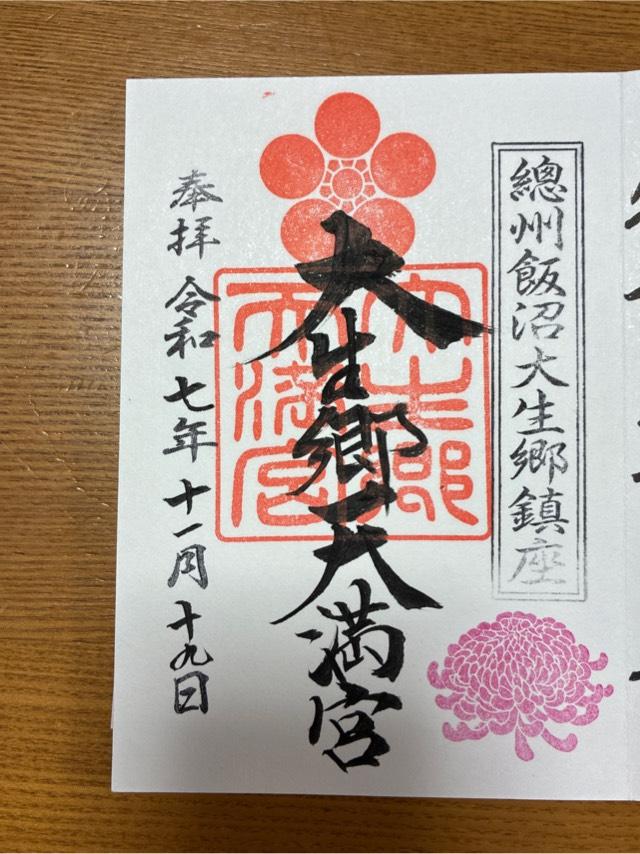 總州飯沼大生郷鎮座
大生郷天満宮
大生郷
天満宮
奉拝 令和七年十一月十九日